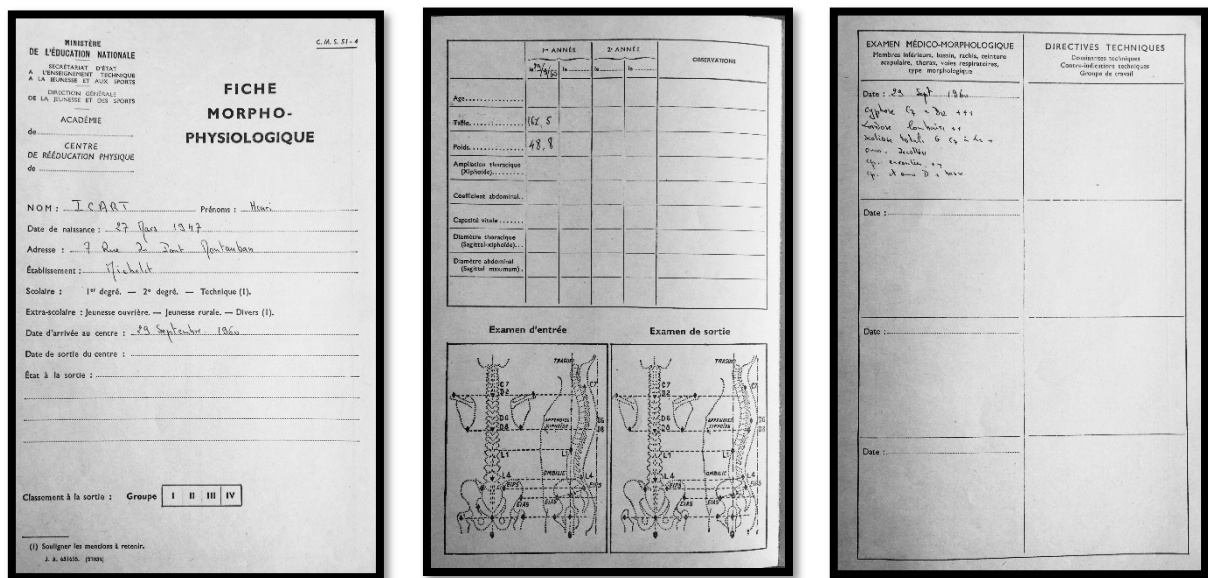 MINISTÈRE
DE L'ÉDUCATION NATIONALE
C. M. S. 51 - 4
SECRÉTARIAT D'ÉTAT
A L'ENSEIGNEMENT TECHNIQUE
A LA JEUNESSE ET AUX SPORTS
DIRECTION GÉNÉRALE
DE LA JEUNESSE ET DES SPORTS
ACADÉMIE
de
CENTRE
DE RÉÉDUCATION PHYSIQUE
de
FICHE
MORPHO-
PHYSIOLOGIQUE
NOM : ICART Prénoms : Henri
Date de naissance : 27 Mars 1947
Adresse : 7 Rue du Pont Montauban
Établissement : Michelet
Scolaire : 1er degré. — 2e degré. — Technique (1).
Extra-scolaire : Jeunesse ouvrière. — Jeunesse rurale. — Divers (1).
Date d'arrivée au centre : 29 Septembre 1960
Date de sortie du centre :
État à la sortie :
Classement à la sortie : Groupe I II III IV
(1) Souligner les mentions à retenir.
1re ANNÉE 2e ANNÉE OBSERVATIONS
le 29/9/60 le le le
Age
Taille 162,5
Poids 48,8
Ampliation thoracique
(Xiphoïde)
Coefficient abdominal
Capacité vitale
Diamètre thoracique
(Sagittal-xiphoïde)
Diamètre abdominal
(Sagittal maximum)
Examen d'entrée Examen de sortie
TRAGUS
C7
D2
D6
D8
APPENDICE
XIPHOÏDE
L1
OMBILIC
L4
EIPS
EIAS
TRAGUS
C7
D2
D6
D8
APPENDICE
XIPHOÏDE
L1
OMBILIC
L4
EIPS
EIAS
EXAMEN MÉDICO-MORPHOLOGIQUE
Membres inférieurs, bassin, rachis, ceinture
scapulaire, thorax, voies respiratoires,
type morphologique
DIRECTIVES TECHNIQUES
Dominantes techniques
Contre-indications techniques
Groupe de travail
Date : 29 Sept 1960
cyphose C7 à D12 +++
Lordose lombaire ++
scoliose totale G C7 à L4 +
omo. décollées
ép. enroulées ++
ép. et omo D + basse
Date :
Date :
Date :